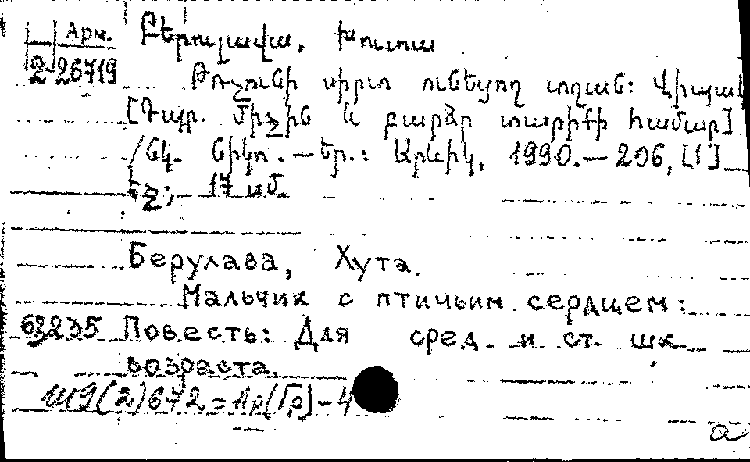 Арм. Բերուլավա, Խուտա
2-26719 Թռչունի սիրտ ունեցող տղան: Վիպակ
[Դպր. միջին և բարձր տարիքի համար]
/Նկ. — Եր.: Արևիկ, 1990.— 206, [1]
էջ; 17 սմ.
Берулава, Хута.
Мальчик с птичьим сердцем:
63235 Повесть: Для сред. и ст. шк.
возраста.
Ш9(2)672=Ар(Гр)-4
а